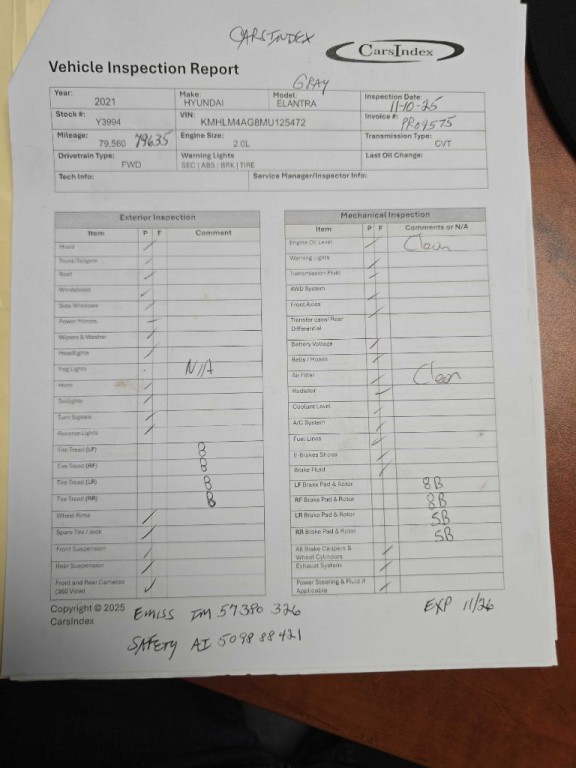 CARSINDEX
CarsIndex
Vehicle Inspection Report
GRAY
Year: 2021 Make: HYUNDAI Model: ELANTRA Inspection Date: 11-10-25
Stock #: Y3994 VIN: KMHLM4AG8MU125472 Invoice #: PRO9575
Mileage: 79,560 79635 Engine Size: 2.0L Transmission Type: CVT
Drivetrain Type: FWD Warning Lights SEC | ABS | BRK | TIRE Last Oil Change:
Tech Info: Service Manager/Inspector Info:
Exterior Inspection
Item P F Comment
Hood
Trunk/Tailgate
Roof
Windshield
Side Windows
Power Mirrors
Wipers & Washer
Headlights
Fog Lights N/A
Horn
Taillights
Turn Signals
Reverse Lights
Tire Tread (LF) 8
Tire Tread (RF) 8
Tire Tread (LR) 8
Tire Tread (RR) 8
Wheel Rims
Spare Tire / Jack
Front Suspension
Rear Suspension
Front and Rear Cameras
(360 View)
Mechanical Inspection
Item P F Comments or N/A
Engine Oil Level Clean
Warning Lights
Transmission Fluid
4WD System
Front Axles
Transfer case/ Rear
Differential
Battery Voltage
Belts / Hoses
Air Filter Clean
Radiator
Coolant Level
A/C System
Fuel Lines
E-Brakes Shoes
Brake Fluid
LF Brake Pad & Rotor 8B
RF Brake Pad & Rotor 8B
LR Brake Pad & Rotor 5B
RR Brake Pad & Rotor 5B
All Brake Calipers &
Wheel Cylinders
Exhaust System
Power Steering & Fluid if
Applicable
Copyright © 2025
CarsIndex
EMISS IM 57380 326
EXP 11/26
SAFETY AI 5098 88421